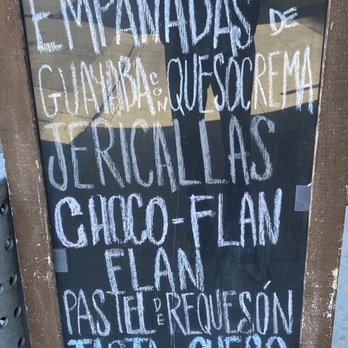 EMPANADAS DE
GUAYABA CON QUESO CREMA
JERICALLAS
CHOCO-FLAN
FLAN
PASTEL DE REQUESÓN